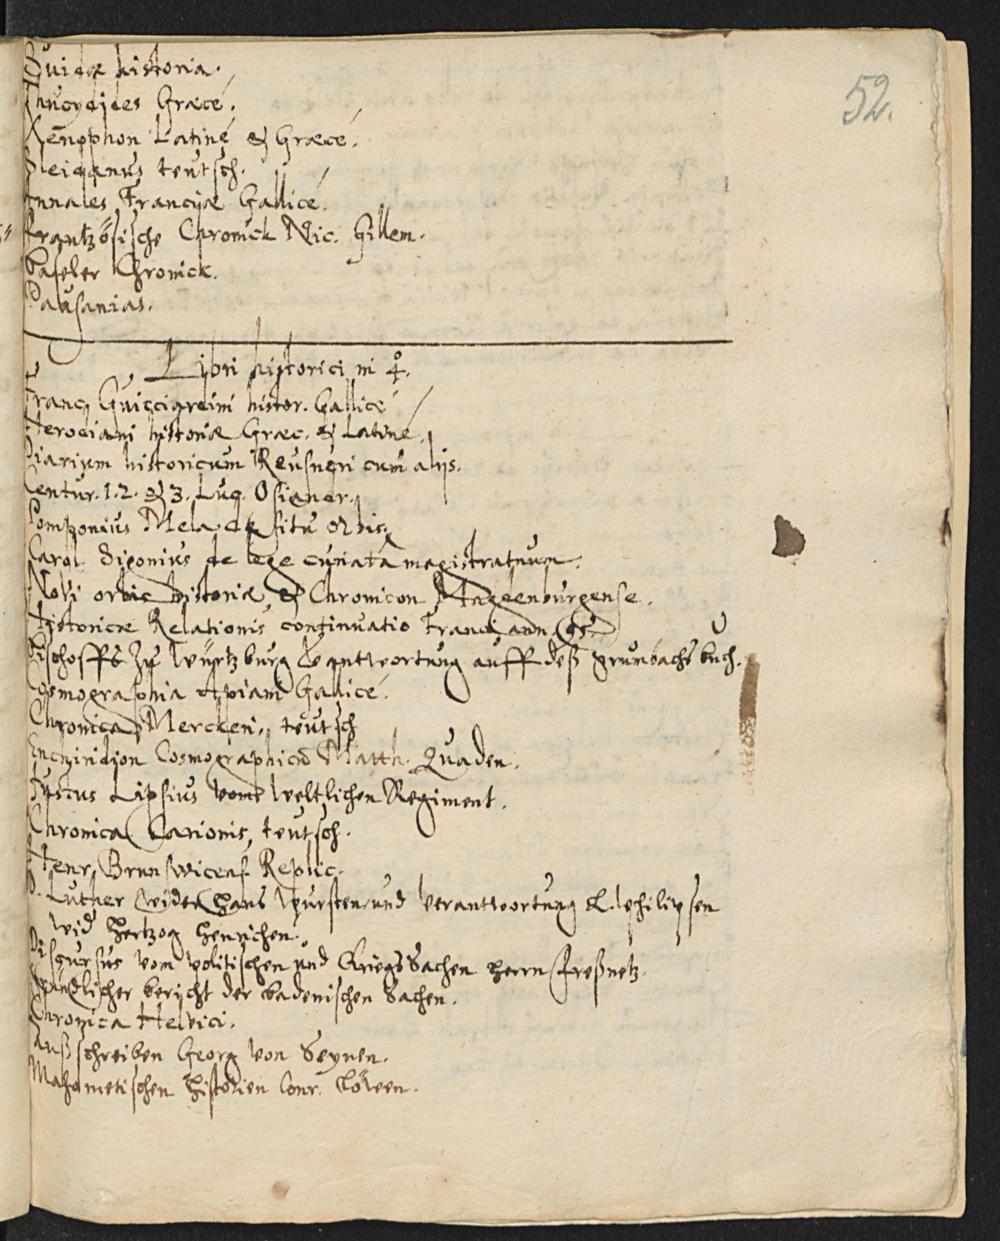 52.
Suidæ historia.
Thucydides Græcé.
Xenophon Latiné & Græcé.
Sleidanus teutsch.
Annales Franciæ Gallicé.
Frantzösische Chronick Nic. Gillem.
Baseler Chronick.
Pausanias.
Libri historici in 4º.
Franc. Guicciardini histor. Gallicé
Herodiani historiæ Græc. & Latiné.
Diarium historicum Reusneri cum alijs.
Centur. 1. 2. & 3. Luc. Osiander.
Pomponius Mela de situ orbis.
Carol. Sigonius de lege curiata magistratuum.
Novi orbis historiæ & Chronicon Magdenburgense.
Historicæ Relationis continuatio Franc. ann.
Bischoffs zu Würtzburg verantwortung auff deß Grumbachs buch.
Cosmographia Apiani Gallicé.
Chronica Merckeri, teutsch
Enchiridion Cosmographicū Matth. Quaden.
Justus Lipsius vom weltlichen Regiment.
Chronica Carionis, teutsch.
Henr. Brunswicens. Replic.
D. Luther wider Hans Wursten und verantwortung L. Philipsen
wid Hertzog Henrichen.
Discursus vom politischen und Kriegs Sachen Herrn
Gründlicher bericht der badenischen Sachen.
Chronica Helvici.
Außschreiben Georg von Seynen.
Mahometischen historien Conr.